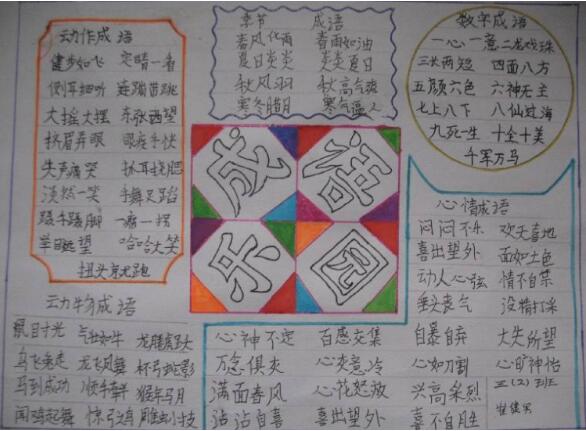 动作成语
健步如飞 定晴一看
侧耳细听 连蹦带跳
大摇大摆 东张西望
挤眉弄眼 眼疾手快
失声痛哭 抓耳挠腮
淡然一笑 手舞足蹈
蹑手蹑脚 一瘸一拐
举目远望 哈哈大笑
扭头就跑
季节 成语
春风化雨 春雨如油
夏日炎炎 炎炎夏日
秋风 秋高气爽
寒冬腊月 寒气逼人
数字成语
一心一意 二龙戏珠
三长两短 四面八方
五颜六色 六神无主
七上八下 八仙过海
九死一生 十全十美
千军万马
成语
乐园
心情成语
闷闷不乐 欢天喜地
喜出望外 面如土色
动人心弦 情不自禁
垂头丧气 没精打采
自暴自弃 大失所望
心如刀割 心旷神怡
兴高采烈 三(2)班
喜不自胜
动物成语
鼠目寸光 气壮如牛 龙腾虎跃
乌飞兔走 龙飞凤舞 杯弓蛇影
马到成功 顺手牵羊 猴年马月
闻鸡起舞 惊弓之鸟 雕虫小技
心神不定 百感交集
万念俱灰 心灰意冷
满面春风 心花怒放
沾沾自喜 喜出望外